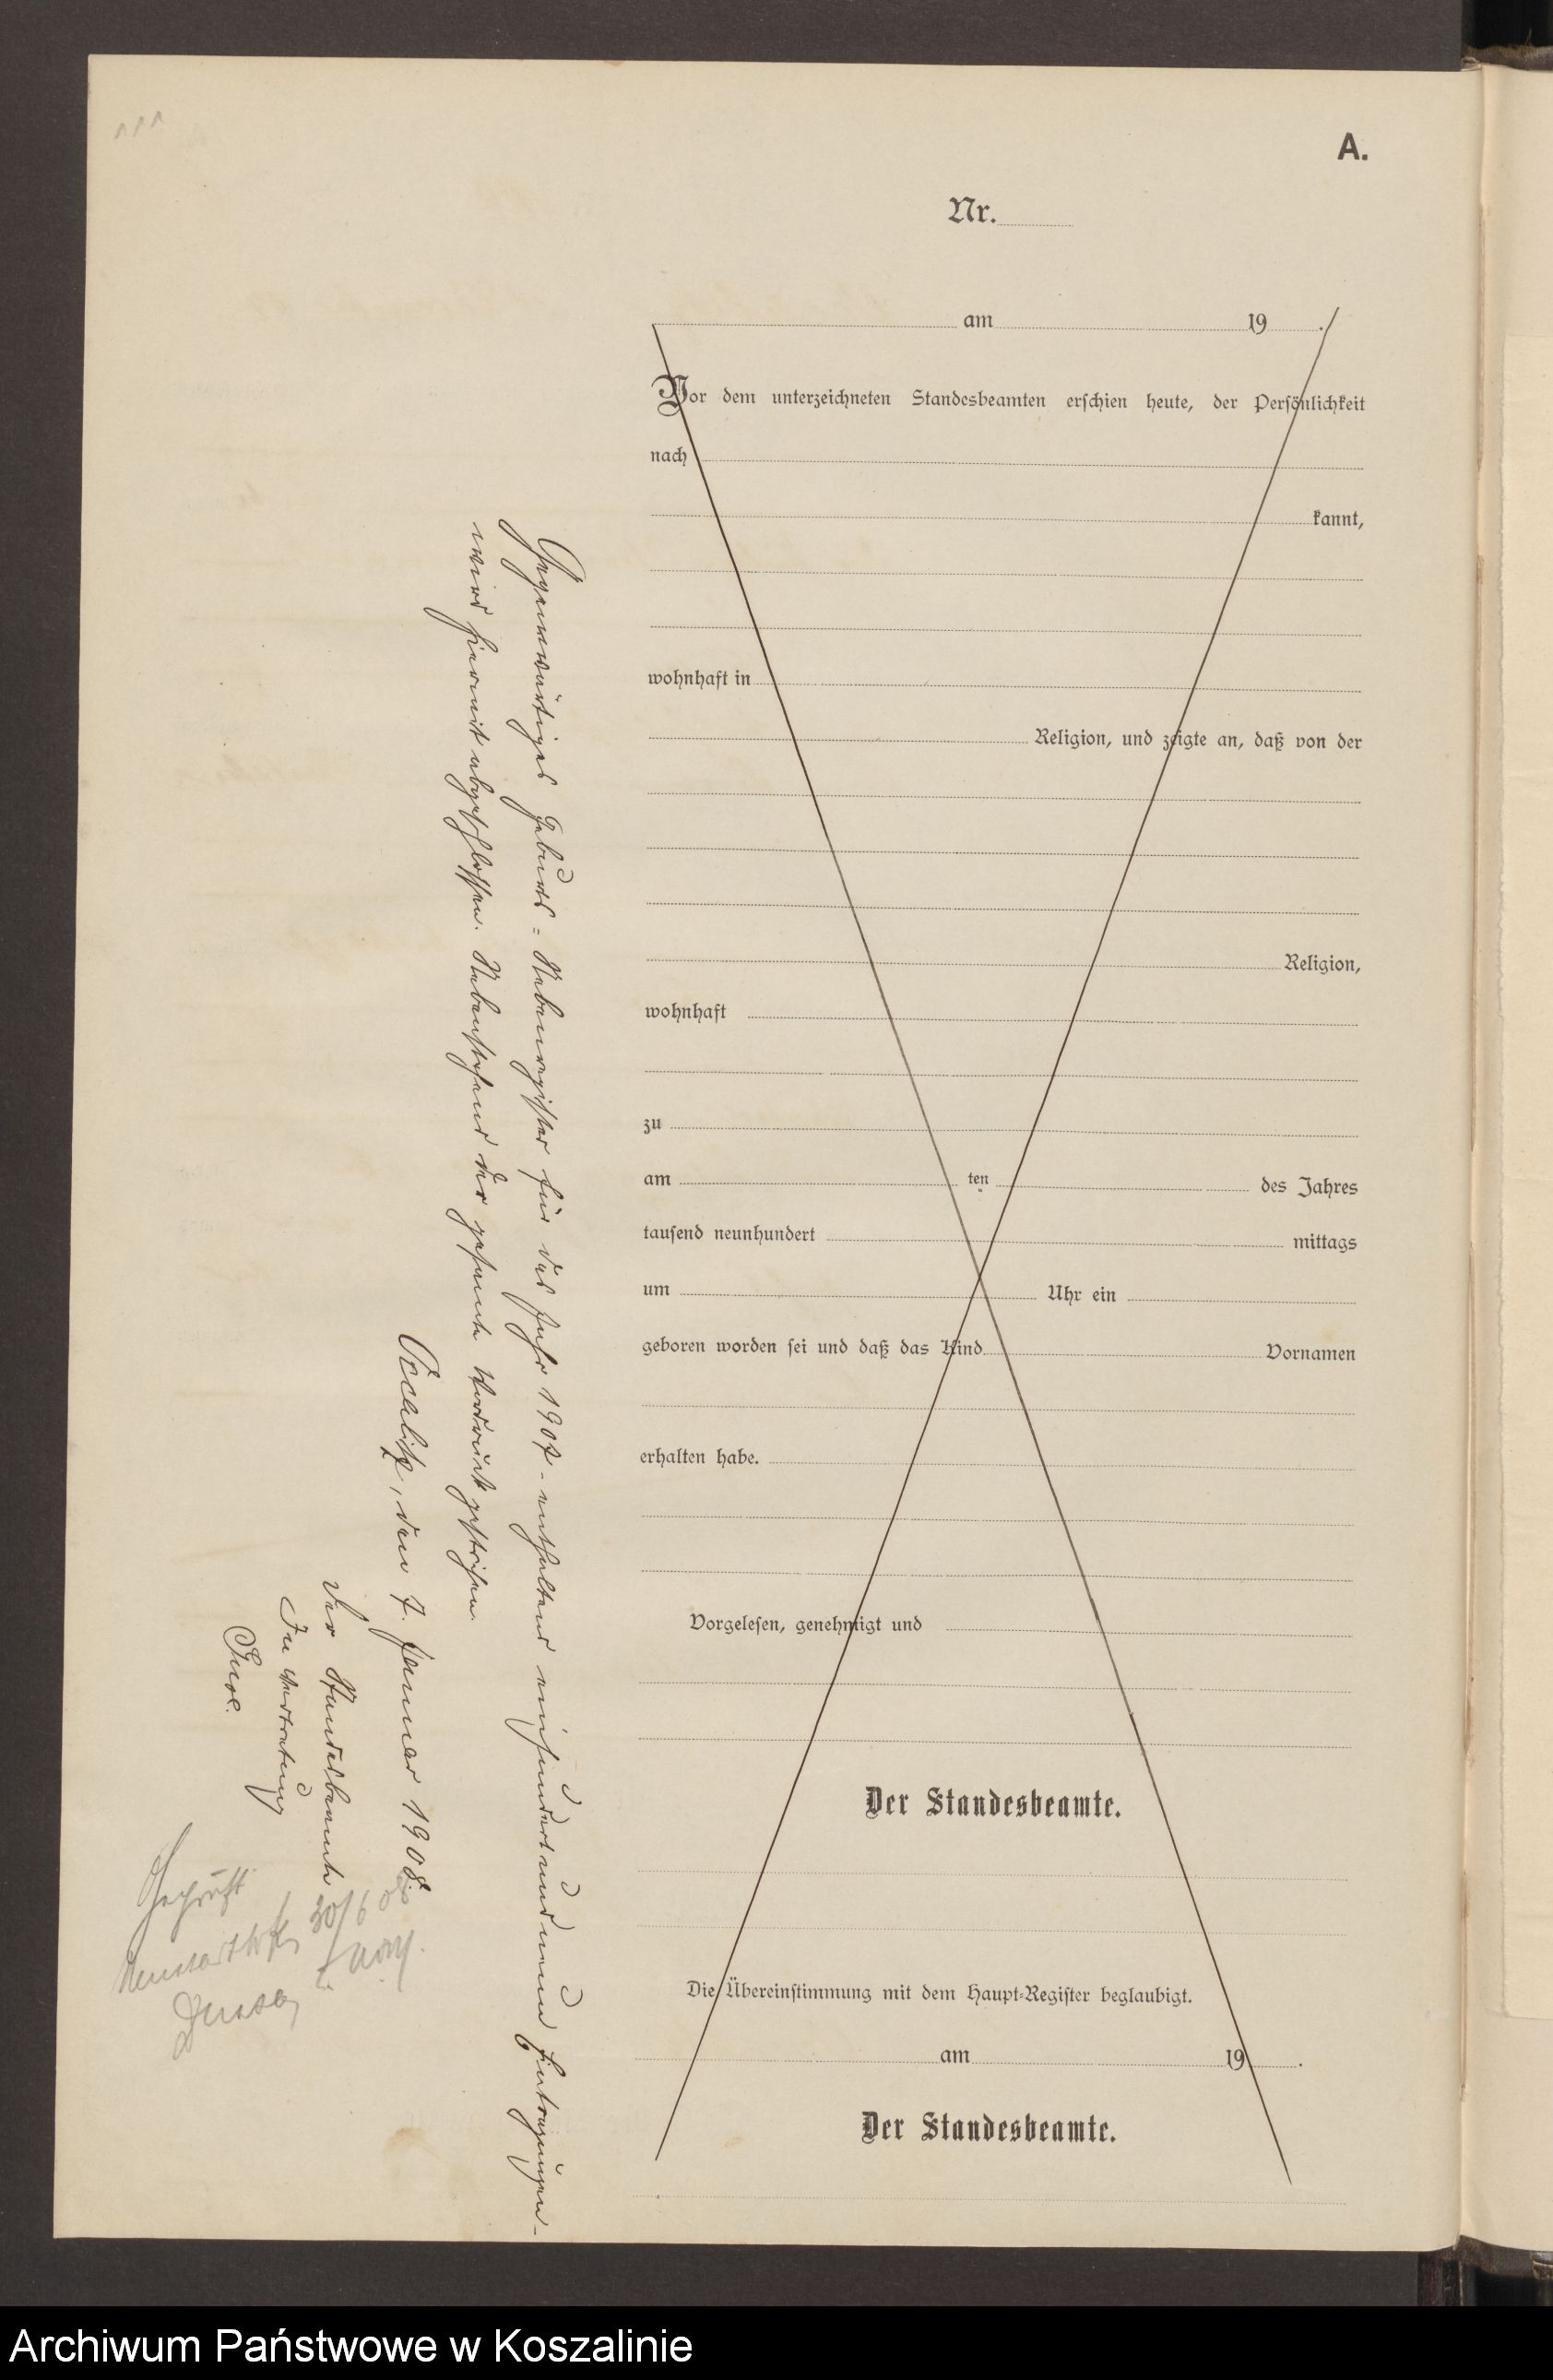 A.
Nr.
am 19 .
Vor dem unterzeichneten Standesbeamten erschien heute, der Persönlichkeit
nach
kannt,
wohnhaft in
Religion, und zeigte an, daß von der
Religion,
wohnhaft
zu
am ten des Jahres
tausend neunhundert mittags
um Uhr ein
geboren worden sei und daß das Kind Vornamen
erhalten habe.
Vorgelesen, genehmigt und
Der Standesbeamte.
Die Übereinstimmung mit dem Haupt-Register beglaubigt.
am 19 .
Der Standesbeamte.
Gegenwärtiges Geburts-Nebenregister für das Jahr 1907 - enthaltend einhundertundneun Eintragungen -
wird hiermit abgeschlossen. Nebenstehend der gesamte Vordruck gestrichen.
den 7. Januar 1908
Der Standesbeamte
In Vertretung
Geprüft
30/6 08
Archiwum Państwowe w Koszalinie